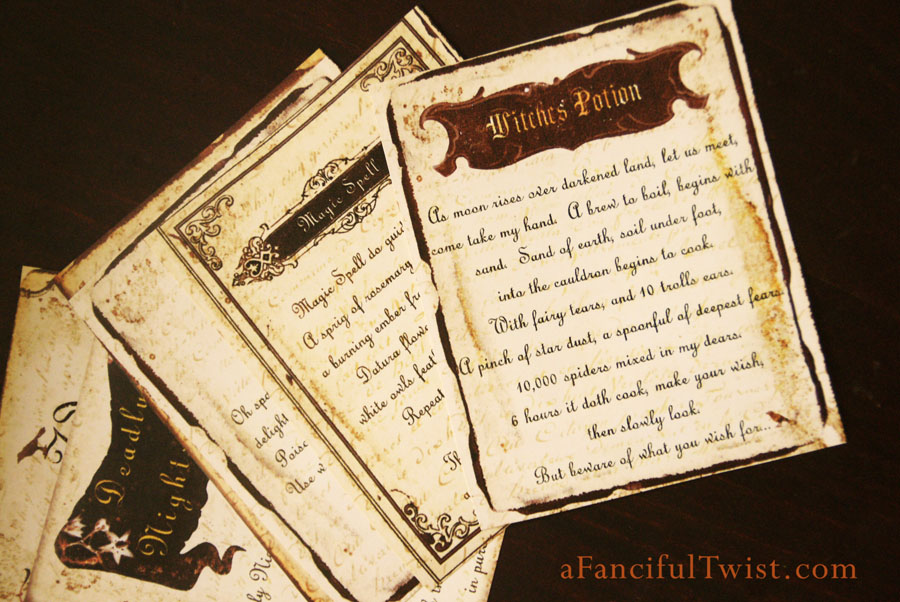 Witches Potion
As moon rises over darkened land, let us meet,
come take my hand. A brew to boil, begins with
sand. Sand of earth, soil under foot,
into the cauldron begins to cook.
With fairy tears, and 10 trolls ears.
A pinch of star dust, a spoonful of deepest fears.
10,000 spiders mixed in my dears.
6 hours it doth cook, make your wish,
then slowly look.
But beware of what you wish for...
Magic Spell
Magic Spell do
A sprig of rosemary
a burning ember
Datura
white owls
Repeat
Oh
delight
Use
Deadly
Night
in
aFancifulTwist.com